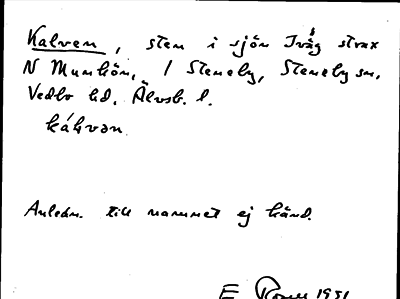 Kalven, sten i sjön Iväg strax
N Munkön, 1 Steneby, Steneby sn,
Vedbo hd, Älvsb. l.
káhvən
Anledn. till namnet ej känd.
E 1931